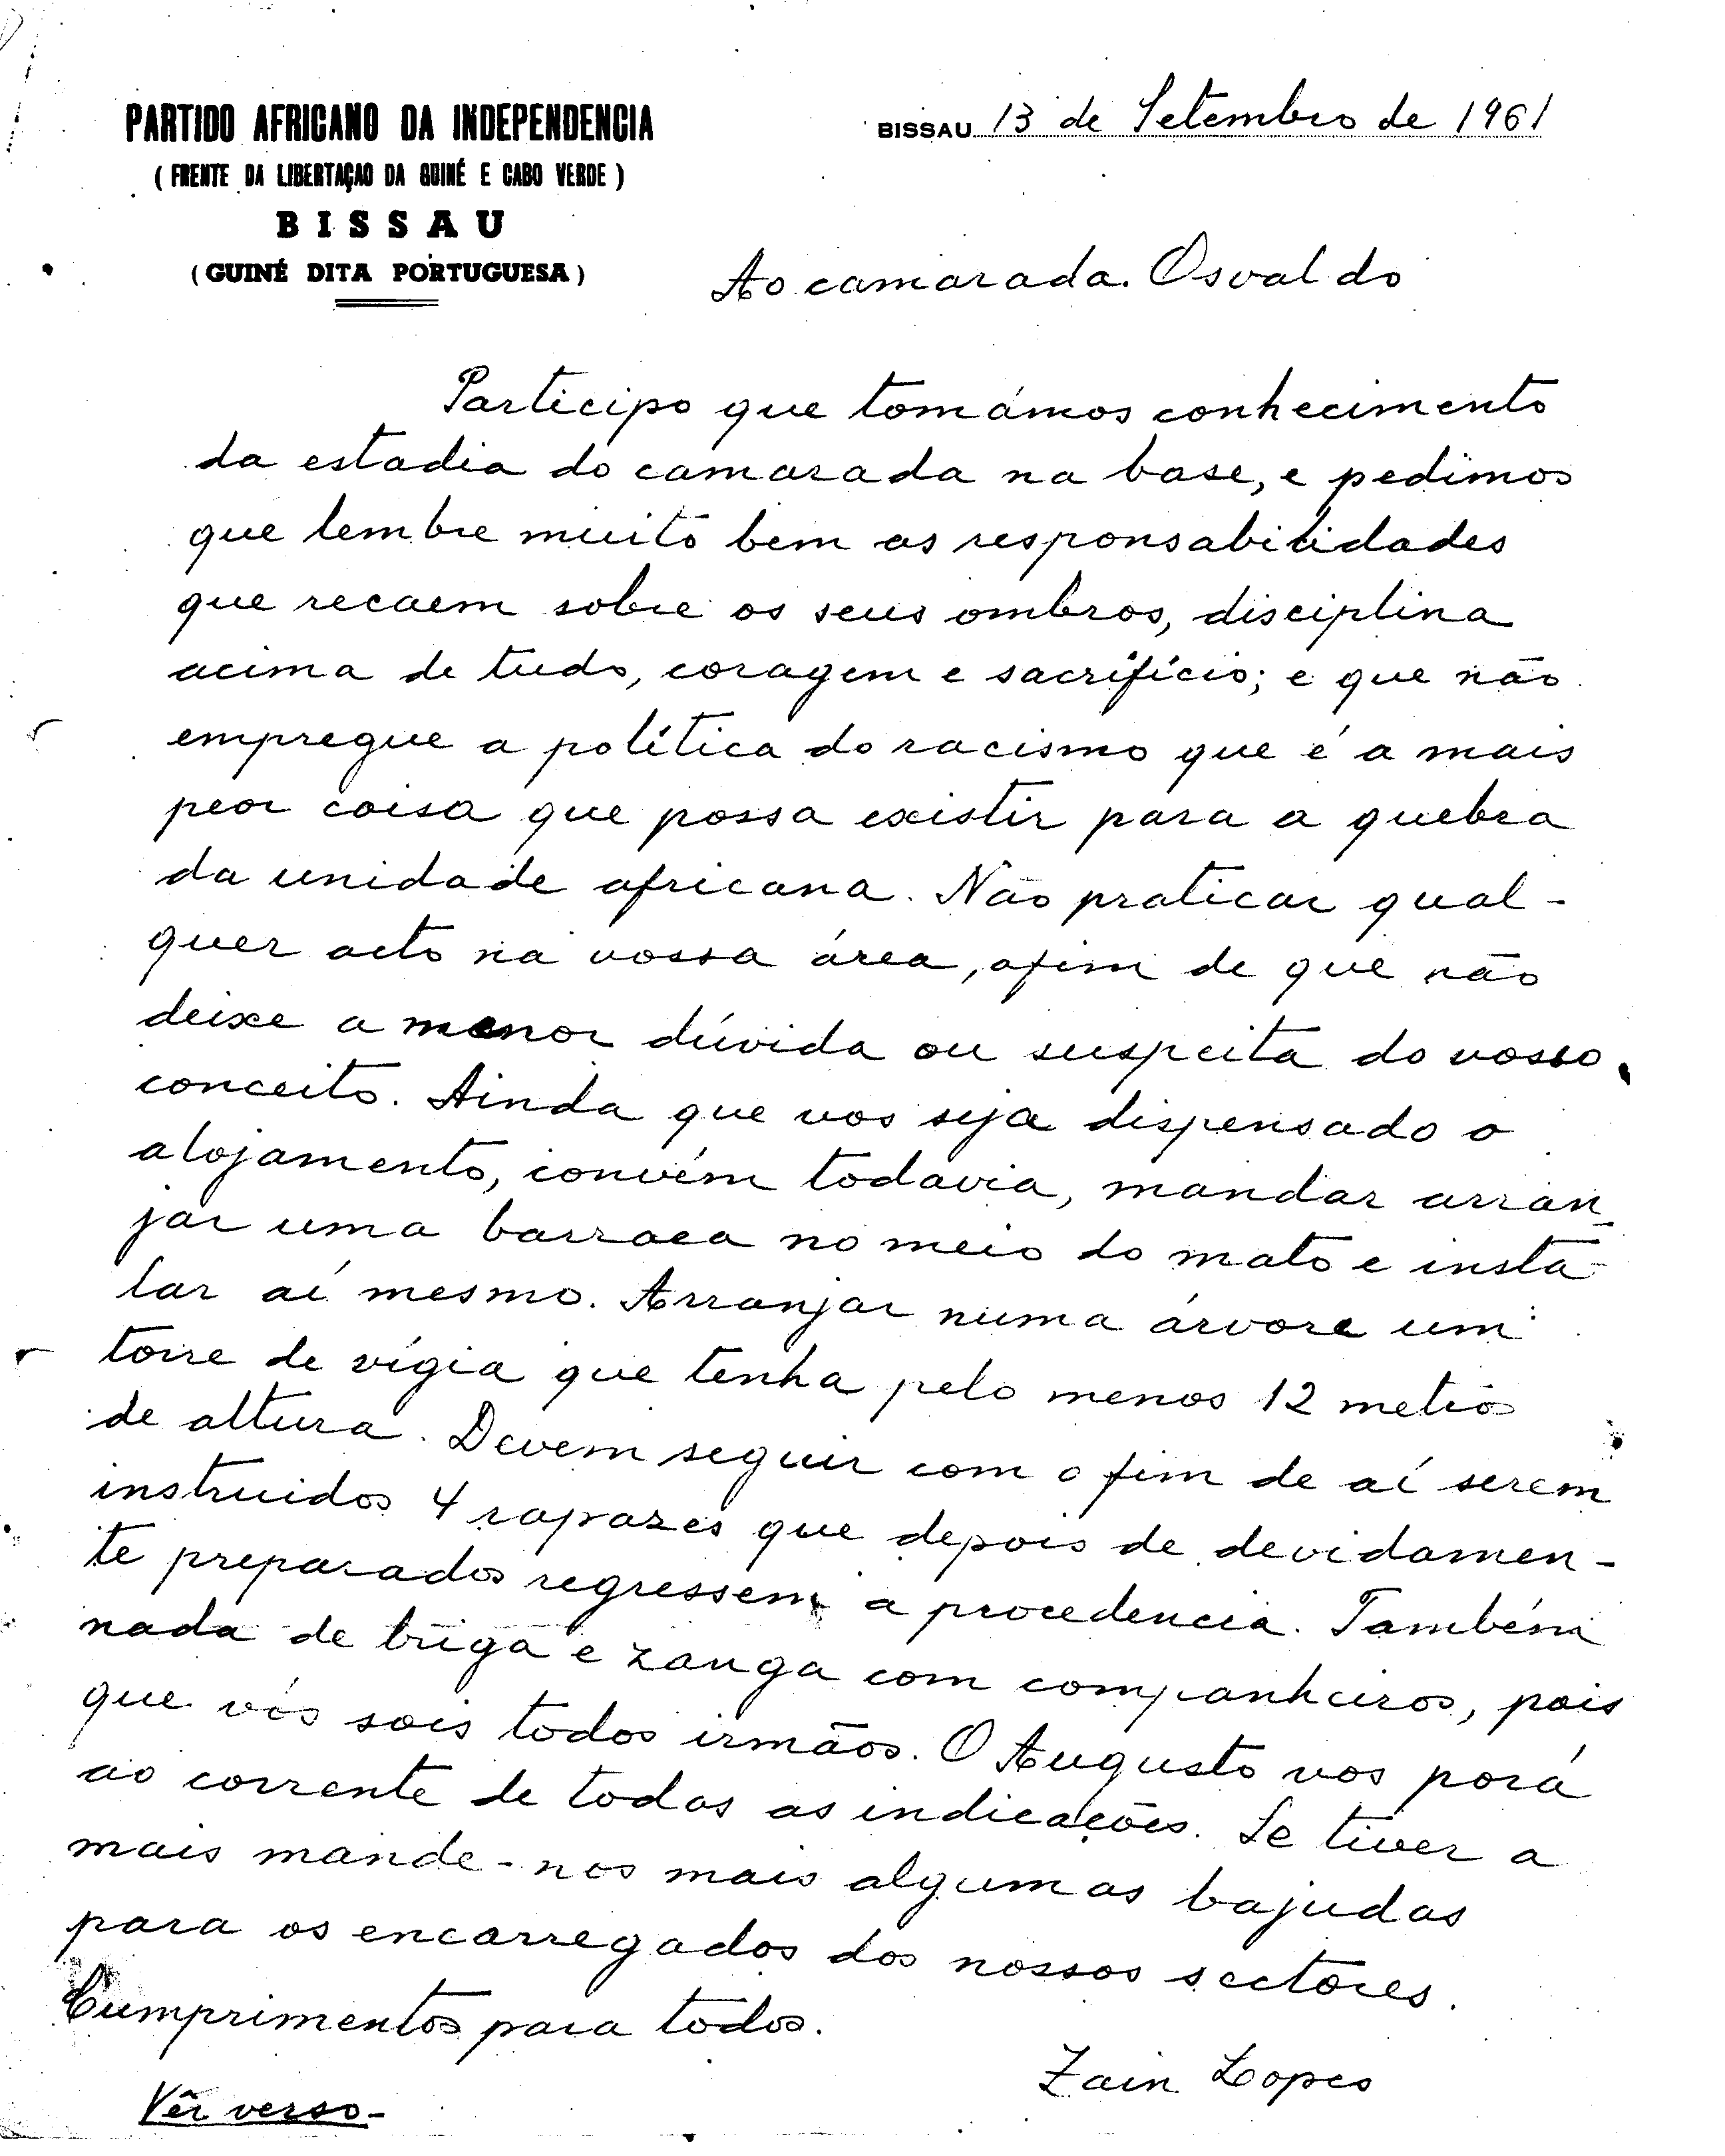 PARTIDO AFRICANO DA INDEPENDENCIA
( FRENTE DA LIBERTAÇAO DA GUINÉ E CABO VERDE )
BISSAU
( GUINÉ DITA PORTUGUESA )
BISSAU 13 de Setembro de 1961
Ao camarada. Osvaldo
Participo que tomámos conhecimento
da estadia do camarada na base, e pedimos
que lembre muito bem as responsabilidades
que recaem sobre os seus ombros, disciplina
acima de tudo, coragem e sacrifício; e que não
empregue a política do racismo que é a mais
peor coisa que possa existir para a quebra
da unidade africana. Não praticar qual-
quer acto na vossa área, afim de que não
deixe a menor dúvida ou suspeita do vosso
conceito. Ainda que vos seja dispensado o
alojamento, convém todavia, mandar arran
jar uma barraca no meio do mato e insta-
lar aí mesmo. Arranjar numa árvore um
torre de vígia que tenha pelo menos 12 metros
de altura. Devem seguir com o fim de aí serem
instruidos 4 rapazes que depois de devidamen-
te preparados regressem a procedencia. Também
nada de briga e zanga com companheiros, pois
que vós sois todos irmãos. O Augusto vos porá
ao corrente de todas as indicações. Se tiver a
mais mande-nos mais algumas bajudas
para os encarregados dos nossos sectores.
Cumprimentos para todos.
Zain Lopes
Vêr verso-